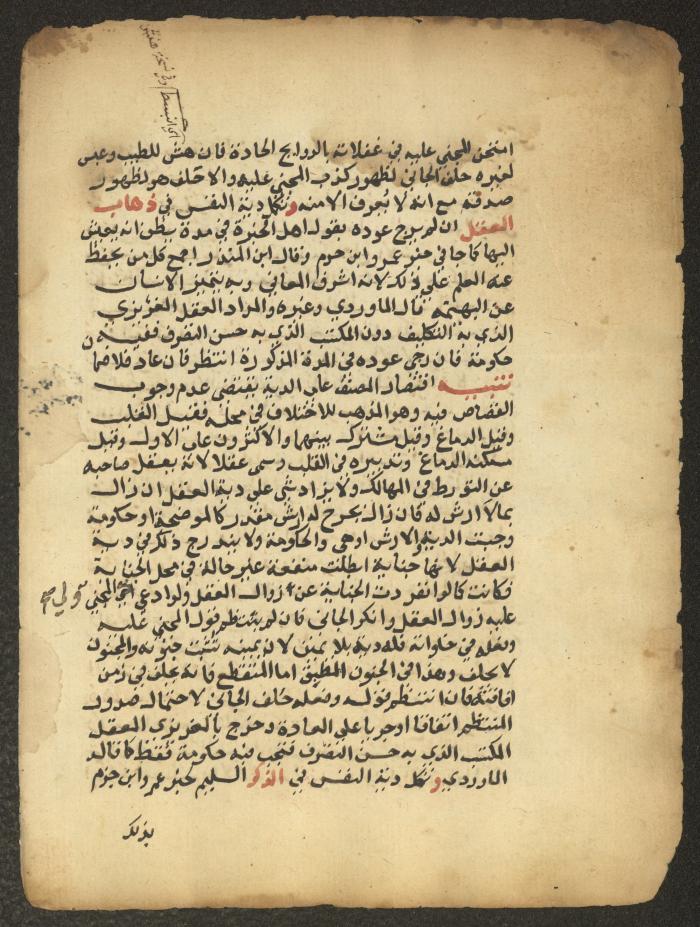 امتحن المجني عليه في غفلاته بالروايح الحادة فان هش للطيب وعبس
لغيره حلف الجاني لظهور كذب المجني عليه والا حلف هو لظهور
صدقه مع انه لا يعرف الا منه وتكمل دية النفس في ذهاب
العقل ان لم يرج عوده بقول اهل الخبرة في مدة يظن انه يعيش
اليها كما جا في خبر عمرو ابن حزم وقال ابن المنذر اجمع كل من يحفظ
عنه العلم على ذلك لانه اشرف المعاني وبه يتميز الانسان
عن البهيمة قال الماوردي وغيره والمراد العقل الغريزي
الذي به التكليف دون المكتسب الذي به حسن التصرف ففيه
حكومة فان رجي عوده في المدة المذكورة انتظر فان عاد فلا ضمان
تنبيه اقتصار المصنف على الدية يقتضي عدم وجوب
القصاص فيه وهو المذهب للاختلاف في محله فقيل القلب
وقيل الدماغ وقيل مشترك بينهما والاكثرون على الاول وقيل
مسكنه الدماغ وتدبيره في القلب وسمي عقلا لانه يعقل صاحبه
عن التورط في المهالك ولا يزاد شي على دية العقل ان زال
بما لا ارش له فان زال بجرح له ارش مقدر كالموضحة او حكومة
وجبت الدية والارش او هي والحكومة ولا يندرج ذلك في دية
العقل لانها جناية ابطلت منفعة غير حالة في محل الجناية
فكانت كما لو انفردت الجناية عن زوال العقل ولو ادعي ولي المجني
عليه زوال العقل وانكر الجاني فان لم ينتظم قول المجني عليه
وفعله في خلواته فله دية بلا يمين لان يمينه تثبت جنونه والمجنون
لا يحلف وهذا في الجنون المطبق اما المتقطع فانه يحلف في زمن
افاقته فان انتظم قوله وفعله حلف الجاني لاحتمال صدور
المنتظم اتفاقا او جريا على العادة وخرج بالغريزي العقل
المكتسب الذي به حسن التصرف فتجب فيه حكومة فقط كما قاله
الماوردي وتكمل دية النفس في الذكر السليم لخبر عمرو ابن حزم
بذلك